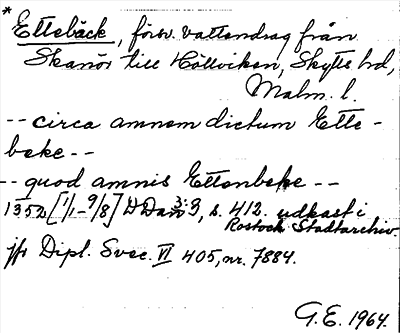 *
Ettebäck, försv. vattendrag från
Skanör till Höllviken, Skytts hd,
Malm. l.
-- circa amnem dictum Ette-
beke --
-- quod amnis Ettenbeke --
1352 [1/1-9/8] D Dan 3:3, s. 412. udkast i
Rostock Stadtarchiv.
jfr Dipl. Svec. VI 405, nr. 7884.
G.E. 1964.